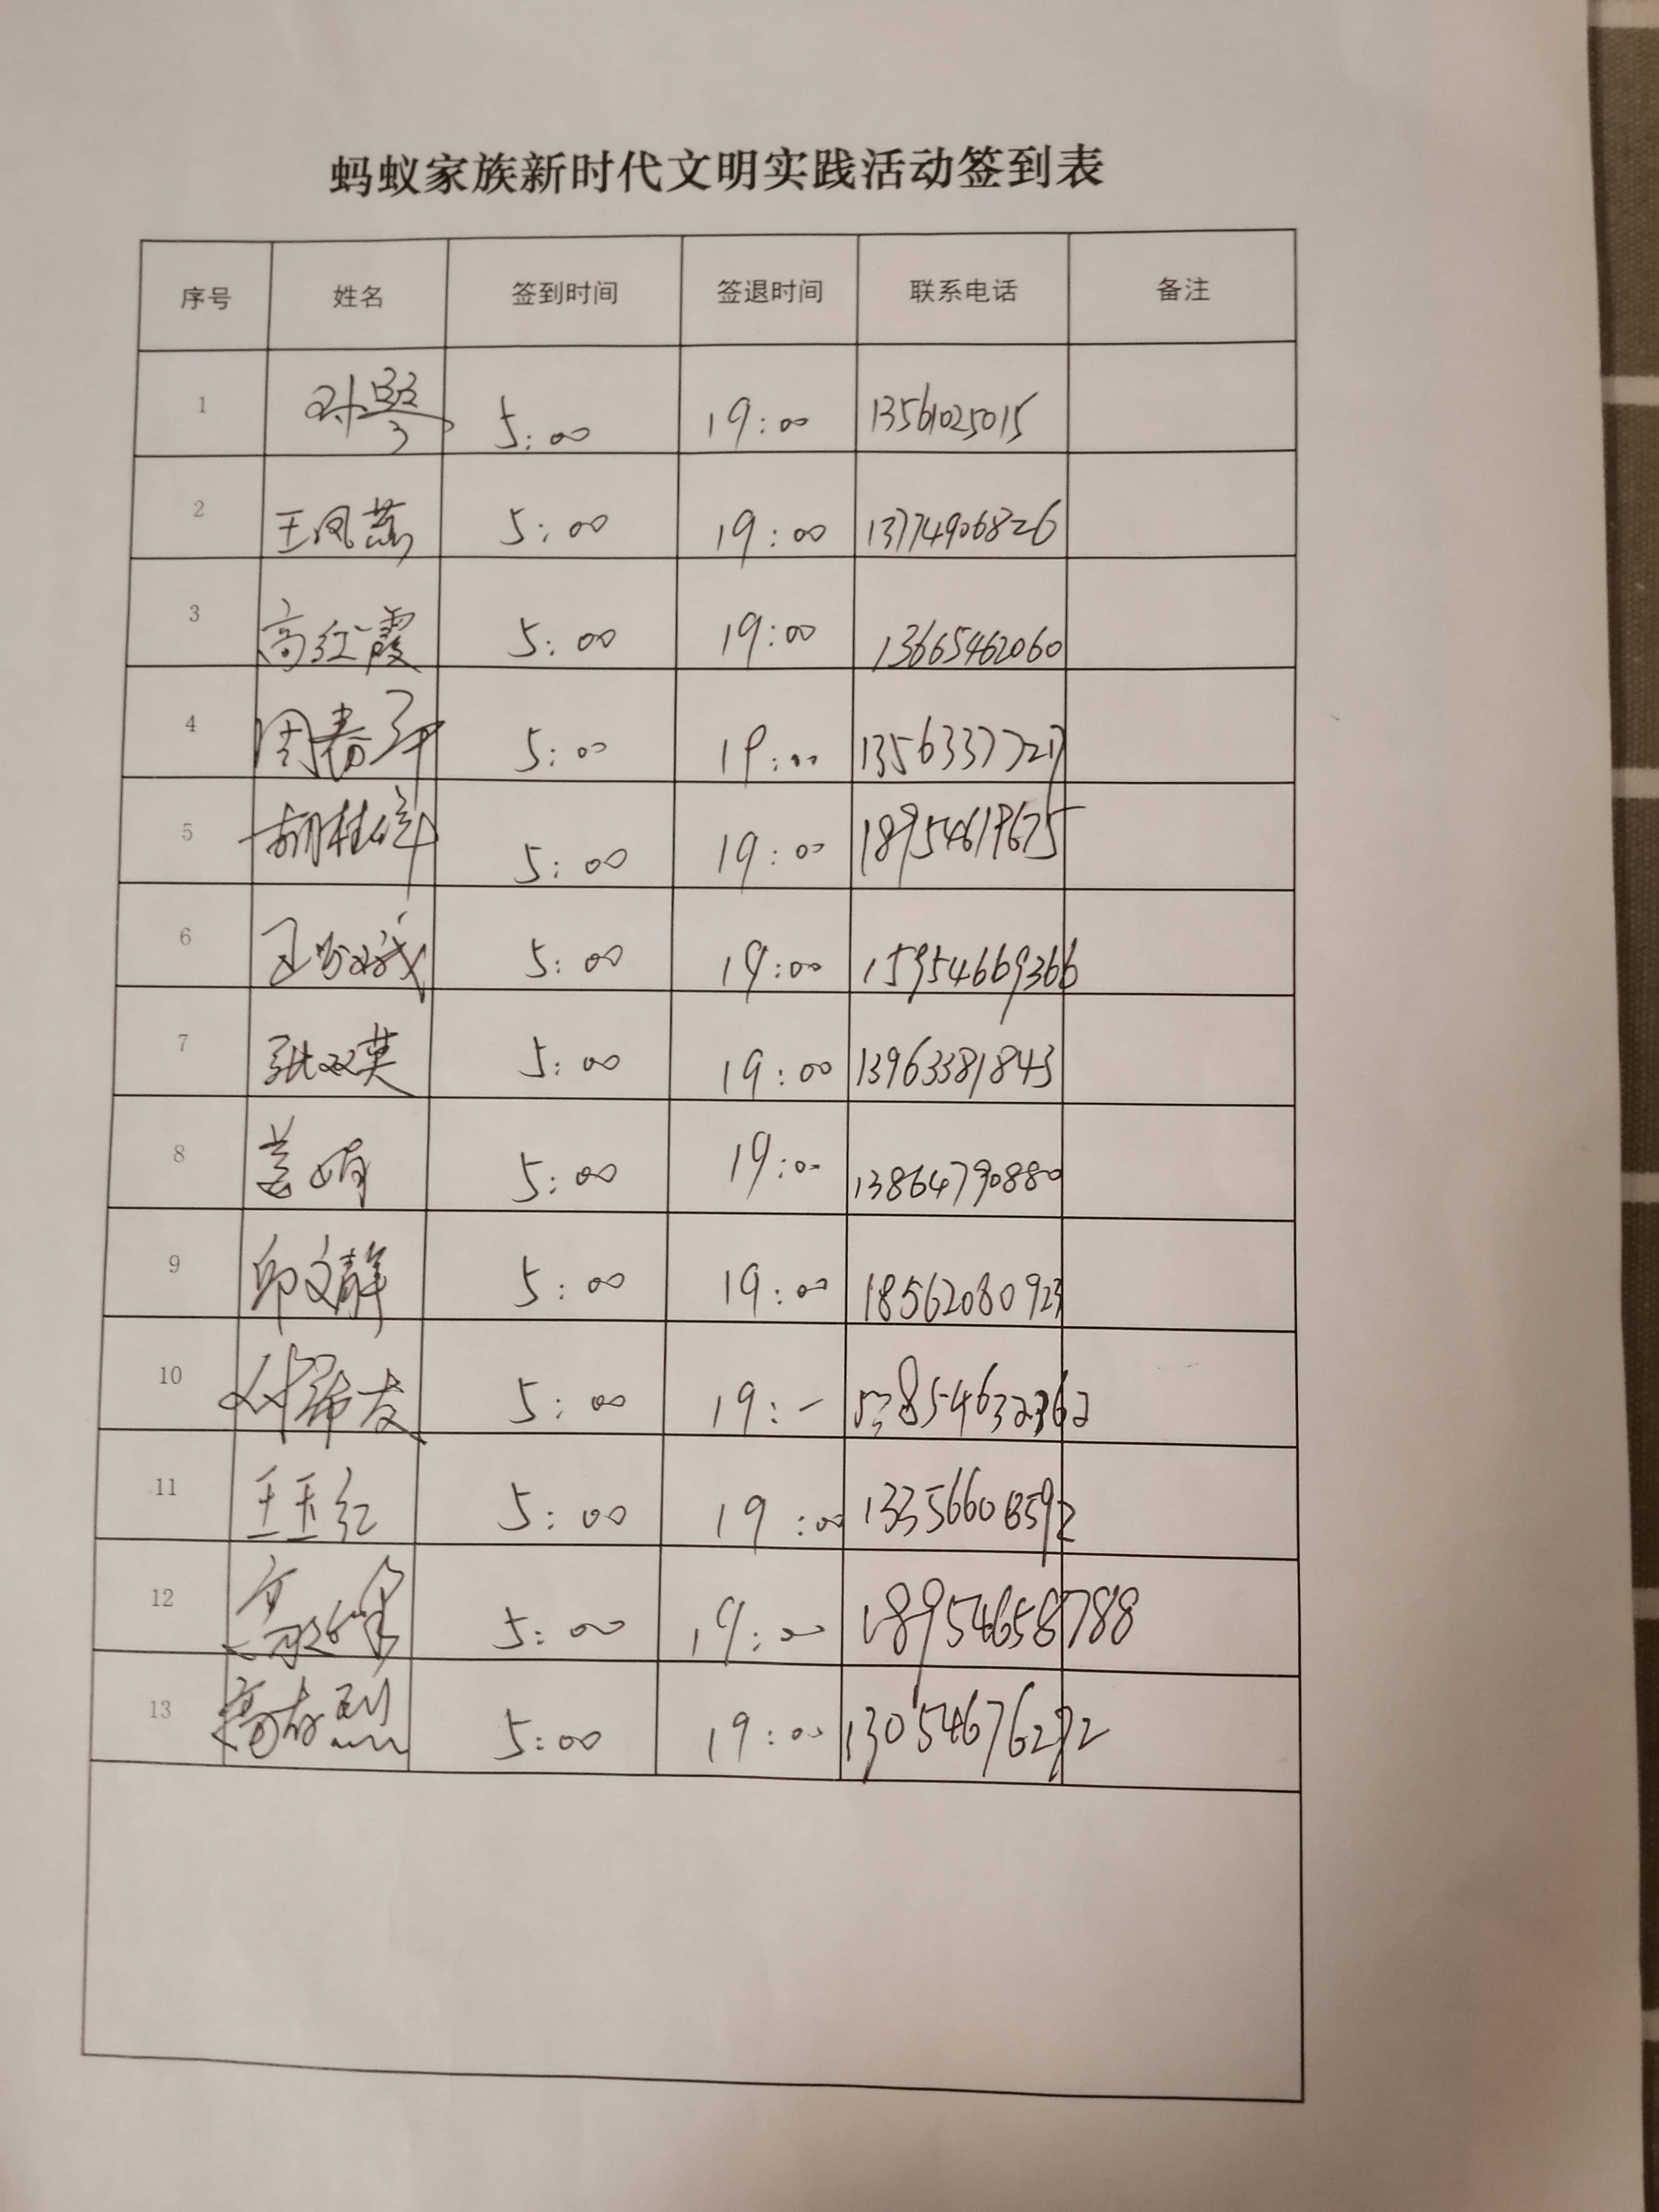 蚂蚁家族新时代文明实践活动签到表
序号 姓名 签到时间 签退时间 联系电话 备注
1 5:00 19:00 13561025015
2 王凤燕 5:00 19:00 13774906826
3 高红霞 5:00 19:00 13665462060
4 周春 5:00 19:00
5 胡桂 5:00 19:00 18954619675
6 王 5:00 19:00 15954669366
7 张双英 5:00 19:00 13963381843
8 姜娟 5:00 19:00 13864790880
9 邱文静 5:00 19:00 18562080923
10 5:00 19:
11 王玉红 5:00 19:00
12 高 5:00 19:00 18954658788
13 高友烈 5:00 19:00 13054676292